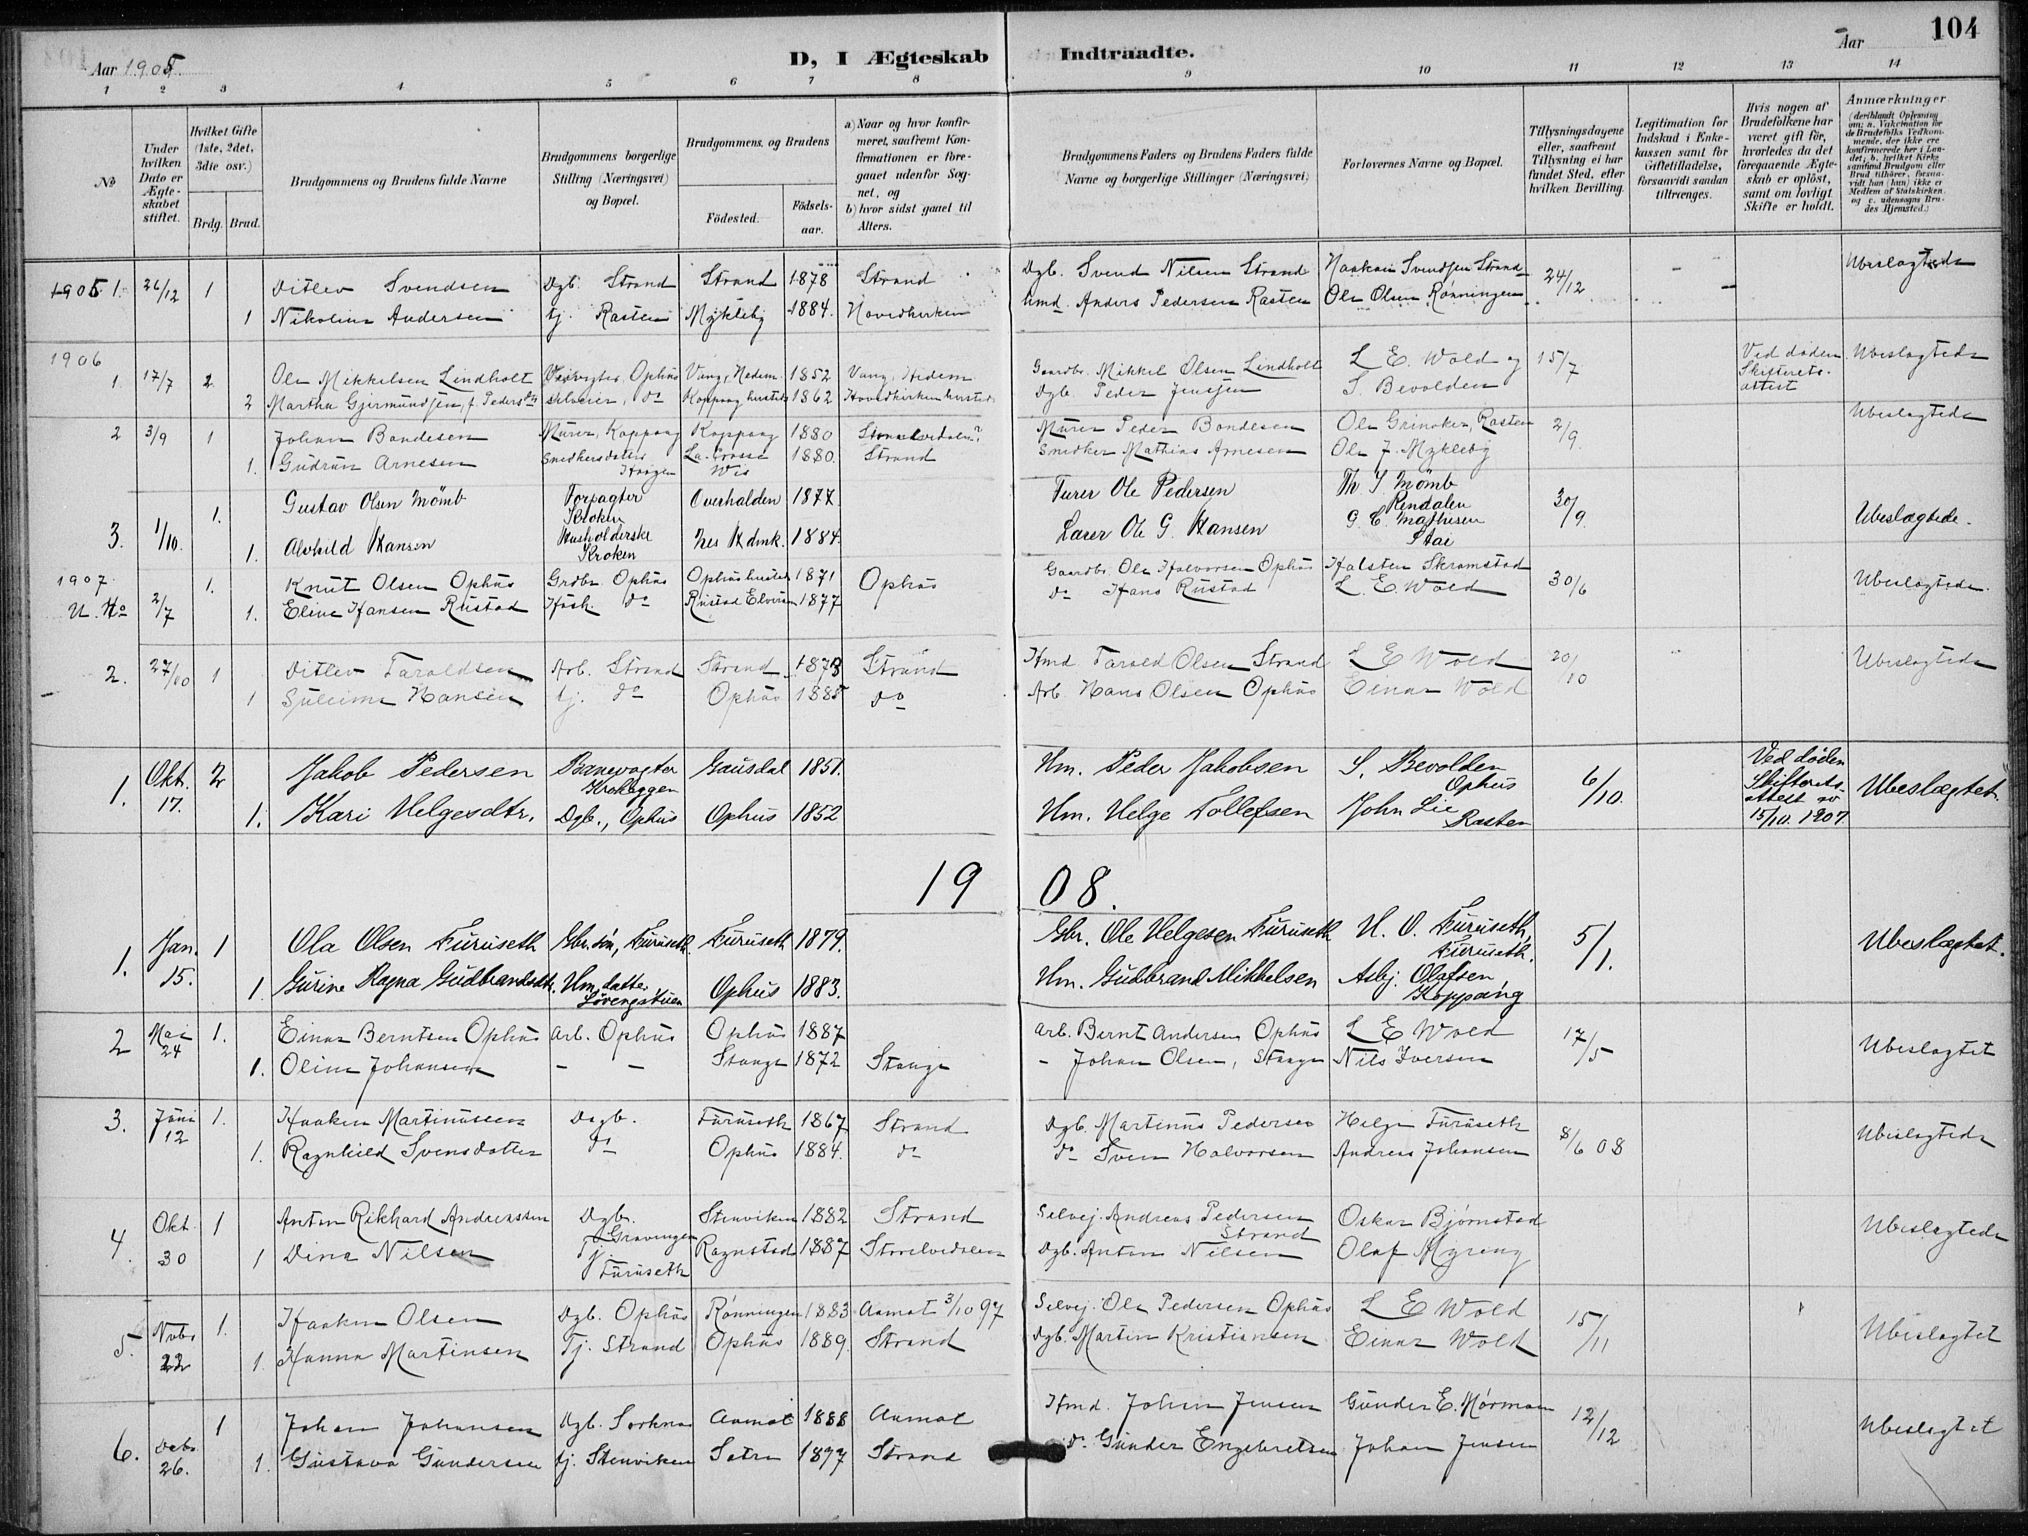 104
Aar 1905.
D, I Ægteskab Indtraadte.
Aar
1 2 3 4 5 6 7 8 9 10 11 12 13 14
No
Under hvilken Dato er Ægteskabet stiftet.
Hvilket Gifte (1ste, 2det, 3die osv.)
Brdg. Brud.
Brudgommens og Brudens fulde Navne
Brudgommens borgerlige Stilling (Næringsvei) og Bopæl.
Brudgommens og Brudens
Födested.
Födsels-aar.
a) Naar og hvor konfirmeret, saafremt Konfirmationen er foregaaet udenfor Sognet, og
b) hvor sidst gaaet til Alters.
Brudgommens Faders og Brudens Faders fulde Navne og borgerlige Stillinger (Næringsvei)
Forlovernes Navne og Bopæl.
Tillysningsdagene eller, saafremt Tillysning ei har fundet Sted, efter hvilken Bevilling.
Legitimation for Indskud i Enkekassen samt for Giftetilladelse, forsaavidt saadan tiltrænges.
Hvis nogen af Brudefolkene har været gift för, hvorledes da det foregaaende Ægteskab er oplöst, samt om lovligt Skifte er holdt.
Anmærkninger
(deriblandt Oplysning om: a. Vakcination for de Brudefolks Vedkommende, der ikke ere konfirmerede her i Landet; b. hvilket Kirkesamfund Brudgom eller Brud tilhörer, forsaavidt han (hun) ikke er Medlem af Statskirken, og c. udensogns Brudes Hjemsted.)
1905 1. 26/12 1 Ditlev Svendsen Dgb. Strand Strand 1878 Strand Dgb. Svend Nilsen Strand Haakon Svendsen Strand 24/12 - Ubeslagtede
1 Nikoline Andersen tj. Rasten Mykleby 1884. Hovedkirken Hmd. Anders Pedersen Rasten Ole Olsen Rønningen -
1906
1. 17/7 2. Ole Mikkelsen Lindholt Ophus Vang, Hedem. 1852 Vang, Hedem Gaardbr. Mikkel Olsen Lindholt L. E. Wold og 15/7 Ved døden Skifterets-attest Ubeslagtede
2 Martha Gjermundsen, f. Pedersdtr do Koppang 1862 Hovedkirken Dgb. Peder Jenssen S. Bevolden
2 3/9 1 Johan Bondesen Murer, Koppang Koppang 1880 Murer Peder Bondesen Ole Rasten 2/9. Ubeslagtede
1. Gudrun Arnesen Snedkersdatter Haugen La-Crosse Wis 1880. Strand Snedker Mathias Arnesen Ole J. Mykleby
3. 1/10. 1. Gustav Olsen Mömb Forpagter Kroken Overhalden 1877 Furer Ole Pedersen Th S Mömb Rendalen 30/9. Ubeslægtede.
1. Alvhild Hansen Husholderske Kroken Nes Hdmk. 1884. Lærer Ole G. Hansen G. C. Mathisen Stai
1907.
2/7 1. Knut Olsen Ophus Grdbr. Ophus Ophus 1871 Ophus Gaardbr. Ole Halvorsen Ophus Halsten Skramstad 30/6 Ubeslagtede.
1. Eline Hansen Rustad Hush. do Rustad Elverum 1877 do Hans Rustad L. E. Wold
2. 27/10 1 Ditlev Taraldsen Arb. Strand Strand 1878 Strand Hmd Tarald Olsen Strand L E Wold 20/10 Ubeslagtede
1 Hansen tj. do Ophus 1885 do Arb. Hans Olsen Ophus Einar Wold
1. Okt. 17. 2 Jakob Pedersen Banevogter Krokeggen Gausdal 1851. Hm. Peder Jakobsen S. Bevolden Ophus 6/10. Ved døden Skifterets-attest av 15/10. 1907 Ubeslægtet.
1. Kari Helgesdtr. Dgb., Ophus Ophus 1852 Hm. Helge Tollefsen John Lie Rasten
1908.
1. Jan. 15. 1 Ola Olsen Furuseth Gbr. søn, Furuseth. Furuseth 1879. Gbr. Ole Helgesen Furuseth H. O. Furuseth, Furuseth. 5/1. Ubeslægtet.
1. Gurine Ragna Gudbrandsdtr. Hm. datter Løvengstuen Ophus 1883. Hm. Gudbrand Mikkelsen Asbj. Olafsen Koppang
2 Mai 24 1. Einar Berntsen Ophus arb. Ophus Ophus 1887 arb. Bernt Andersen Ophus L E Wold 17/5 Ubeslagtet
1. Oline Johansen - - Stange 1872 Stange - Johan Olsen, Stange Nils Iversen
3. Juni 12 1. Haaken Martinussen Dagb. Furuseth 1867 Strand Dgb. Martinus Pedersen Helge Furuseth 8/6 08 Ubeslagtede
1. Ragnhild Svensdatter do Ophus 1884. do do Sven Halvorsen Andreas Johansen
4. Okt. 30 1 Anton Rikhard Andreassen Dgb. Gravingen Stenviken 1882 Strand Selvej. Andreas Pedersen Strand Oskar Bjørnstad Ubeslagtede
1 Dina Nilsen Tj. Furuseth Ragnstad 1887 Storelvedalen Dgb. Anton Nilsen Olaf Myreng
5. Novbr 22 1. Haaken Olsen Dgb. Ophus Rønningen 1883 Aamot 3/10 97 Selvej. Ole Pedersen Ophus L E Wold 15/11 Ubeslagtet
1. Hanna Martinsen Tj. Strand Ophus 1889. Strand Dgb. Martin Kristiansen Einar Wold
6. Decbr 26. 1 Johan Johansen Dgb. Sorknes Aamot 1888 Aamot Hmd. Johan Jensen Gunder E. Mørmoen 12/12 Ubeslagtet
1. Gustava Gundersen tj. Stenviken Sætre 1897 Strand do. Gunder Engebretsen Johan Jensen